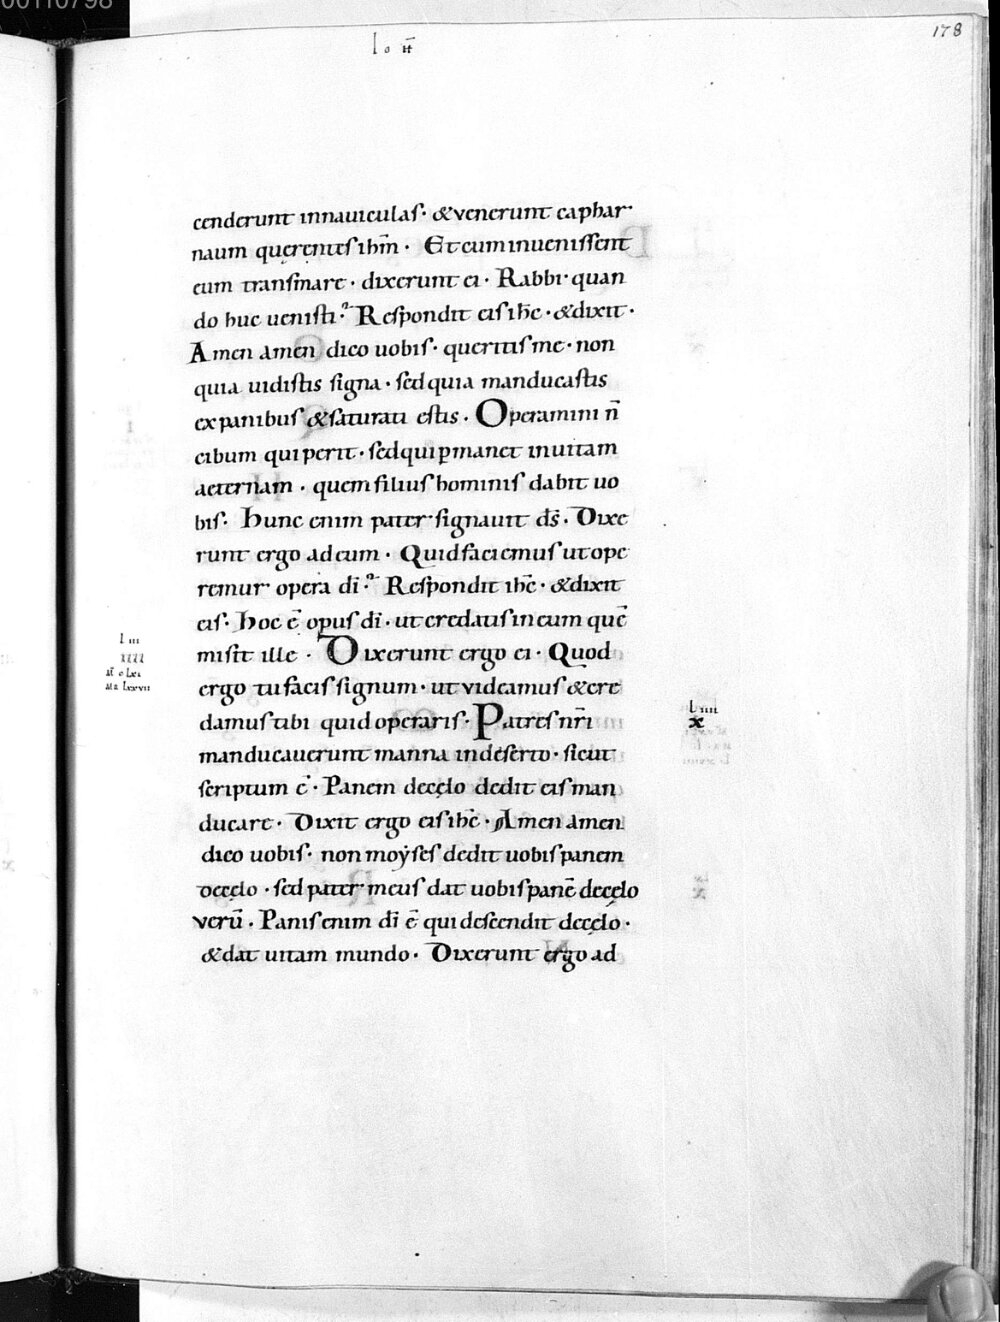 00110798
178
Io n̄
cenderunt innauiculas· &venerunt caphar
naum querentes ihm̄· Et cum inuenissent
eum transmare· dixerunt ei· Rabbi· quan
do huc uenisti? Respondit eis ihc̄· &dixit·
Amen amen dico uobis· queritis me· non
quia uidistis signa· sed quia manducastis
ex panibus &saturati estis· Operamini n̄
cibum qui perit· sed qui ꝑmanet inuitam
aeternam· quem filius hominis dabit uo
bis· hunc enim pater signauit ds̄· Dixe
runt ergo ad eum· Quid faciemus ut ope
remur opera dī? Respondit ihc̄· &dixit
eis· hoc ē opus dī· ut credatis in eum quē
misit ille· Dixerunt ergo ei· Quod
ergo tu facis signum· ut videamus &cre
damus tibi quid operaris· Patres nr̄i
manducauerunt manna indeserto· sicut
scriptum ē· Panem decęlo dedit eis man
ducare· Dixit ergo eis ihc̄· Amen amen
dico uobis· non moẏses dedit uobis panem
decęlo· sed pater meus dat uobis panē decęlo
verū· Panis enim dī ē qui descendit decęlo·
&dat uitam mundo· Dixerunt ergo ad
L iii
IIII
M̄ Lxxvii
L iiii
x